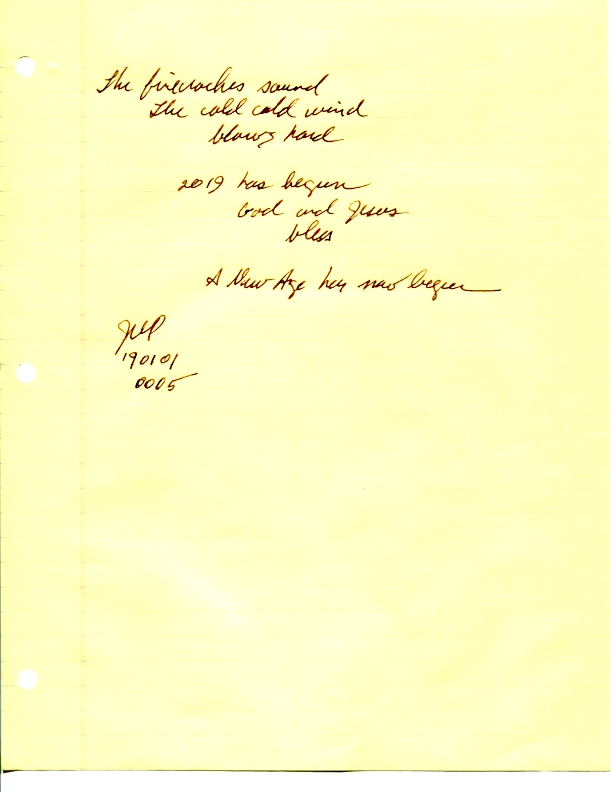 The firecrackers sound
The cold cold wind
blows hard
2019 has begun
God and Jesus
bless
A New Age has now begun
190101
0005